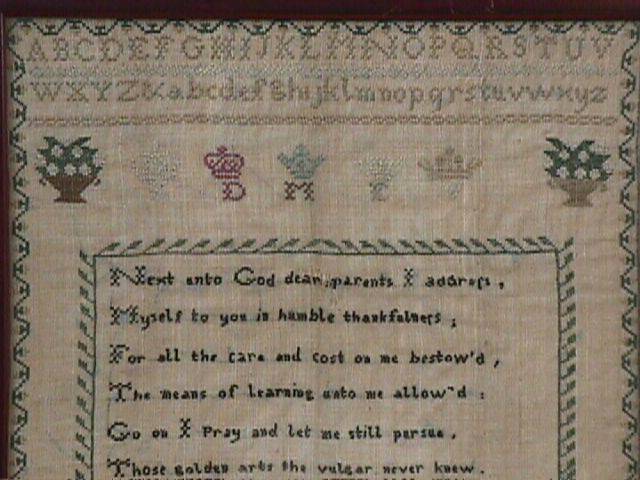 ABCDEFGHIJKLMNOPQRSTUV
WXYZ&abcdefghijklmnopqrstuvwxyz
D M E
Next unto God dear parents I address,
Myself to you in humble thankfulness;
For all the care and cost on me bestow'd,
The means of learning unto me allow'd:
Go on I Pray and let me still persue,
Those golden arts the vulgar never knew.